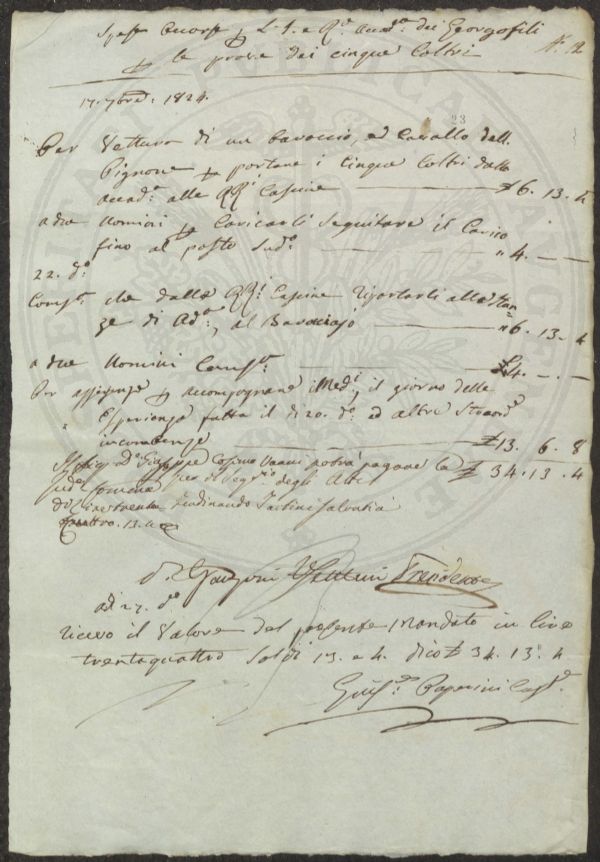 Spese occorse p. L'I. e R.e Accad.a dei Georgofili
N.° 12
p. le prove dei cinque Coltri
17. 7bre: 1824.
23
Per Vettura di un baroccio, ed Cavallo dall.
Pignone p. portare i cinque Coltri dalla
Accad.a alle RR.i Cascine £ 6. 13. 4
a due Uomini p. Caricarli seguitare il Carico
fino al posto Sud.o " 4. — —
22. d.o
Comp.t che dalle RR.i Cascine riportarli alle Stan=
ze di Ad.a, al Barocciajo " 6. 13. 4
a due Uomini Comp.t £ 4. —. —
Per assistenze p. accompagnare i Med.i, il giorno delle
Esperienze fatta il dì 20. d.o ed altre Straord.e
incombenze £ 13. 6. 8
£ 34. 13. 4
Giuseppe Cosimo Vanni potrà pagare la
Somma degli Atti
di Lire trenta Ferdinando Tartini Salvatici
quattro. 13. 4
Presidente
Ad 27. d.o
ricevo il Valore del presente Mandato in lire
trentaquattro Soldi 13. e 4. dico £ 34. 13. 4
Gius.e Paperini Cust.e